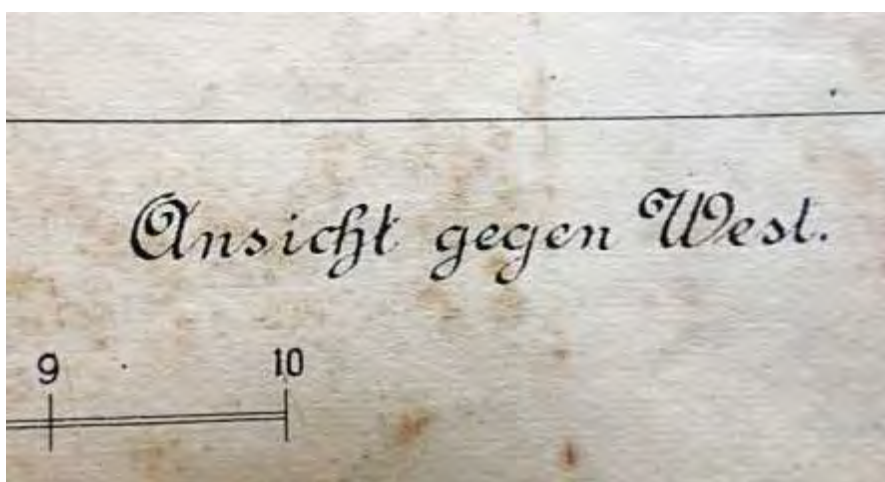 Ansicht gegen West.
9 10